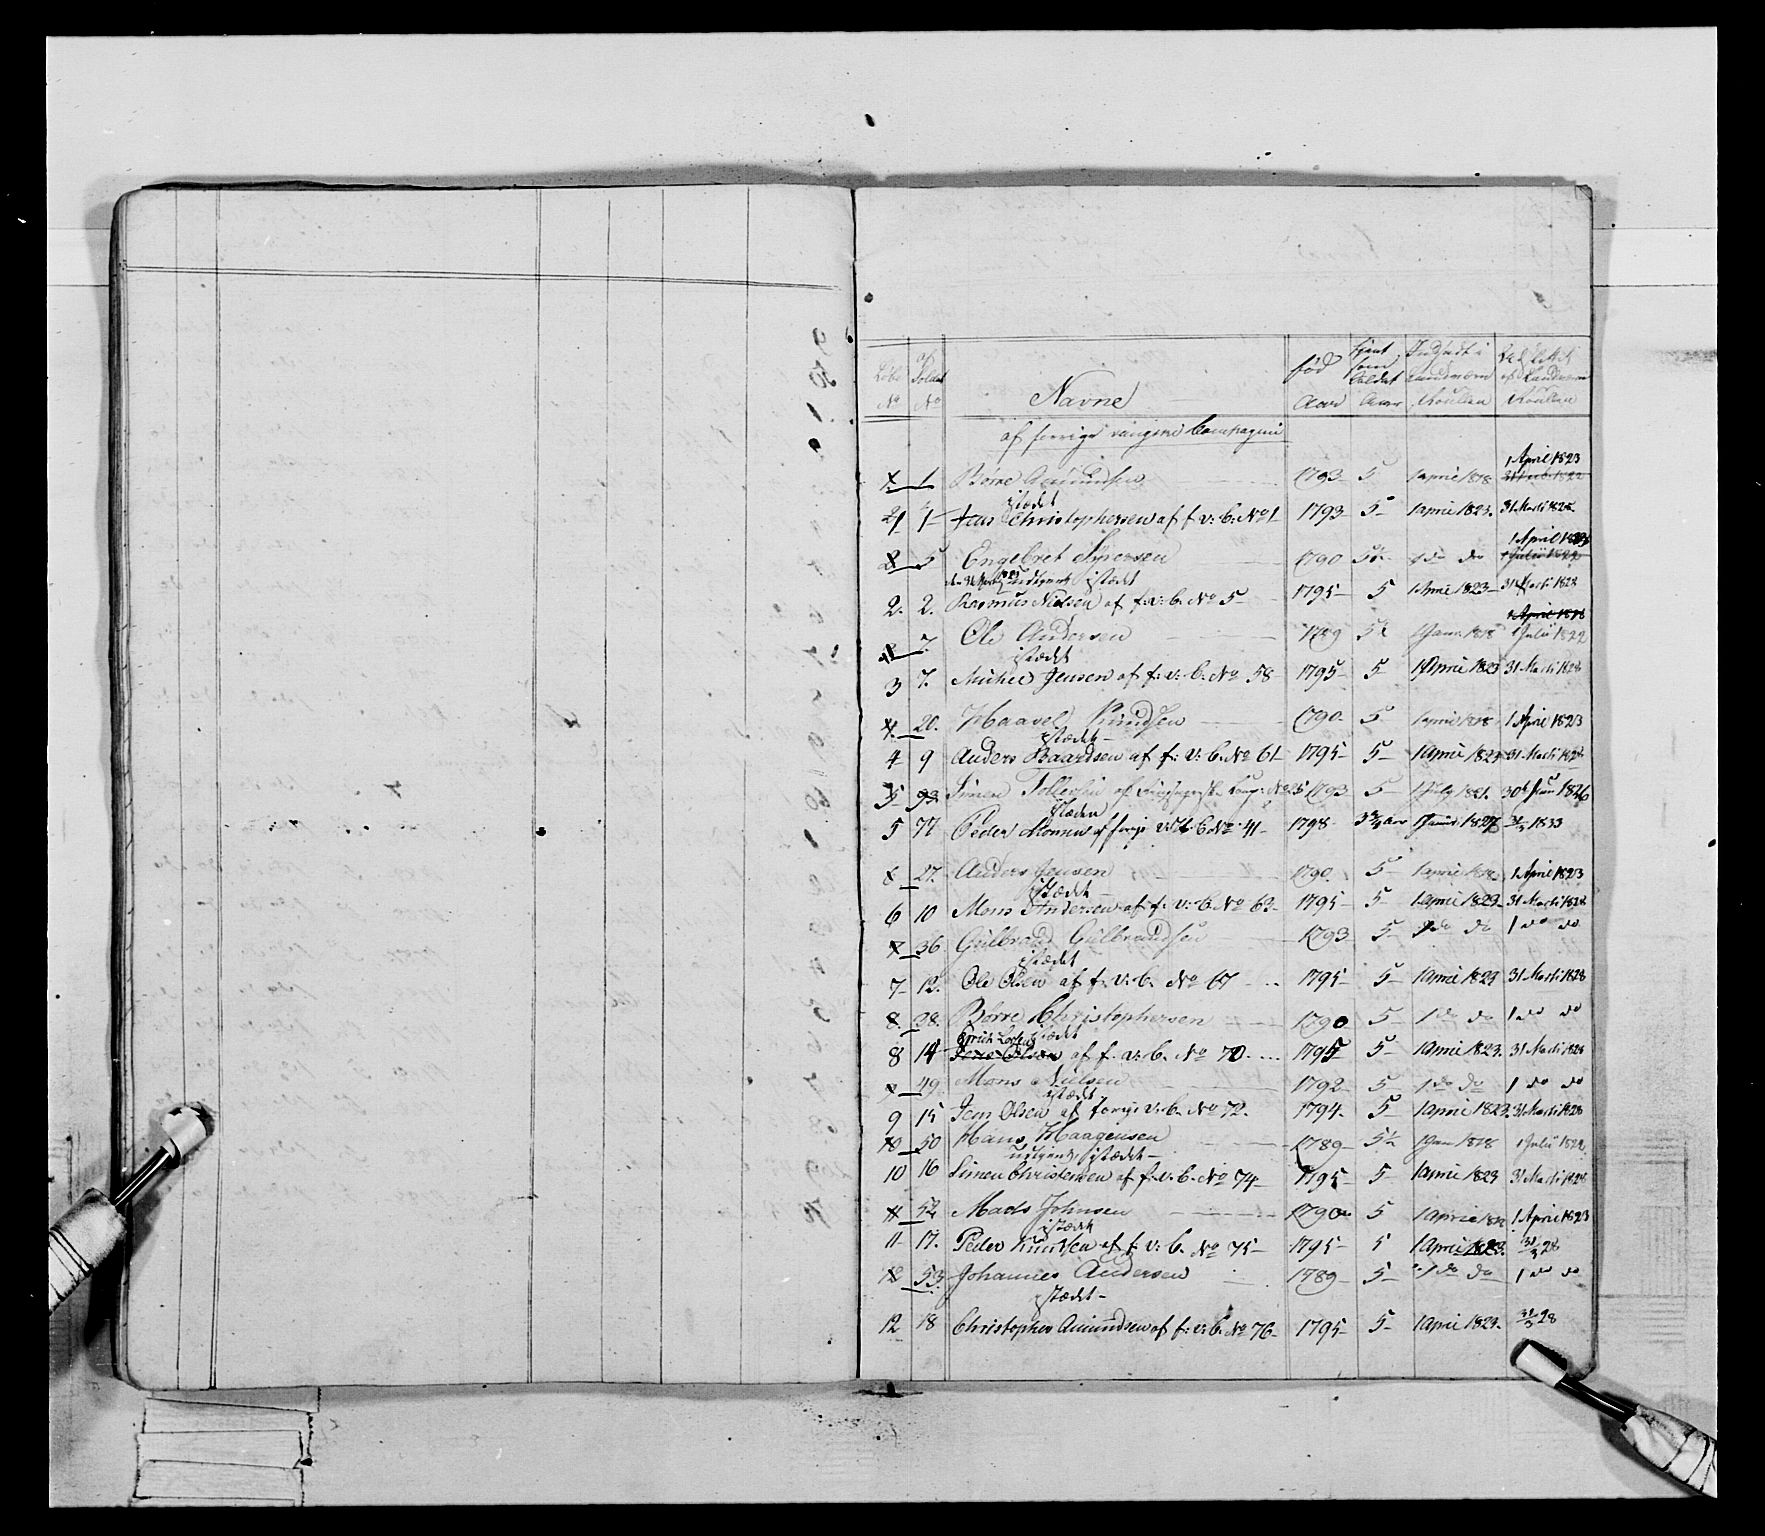 Löbe No af Soldat No Navne fød Aar tjent som Soldat Aar Indsadt i Landværn Roullen Udslettet af Landværn Roullen
af forrige vangske Compagnie
1 April 1823
1. 1 Børre Amundsen 1793 5 1 April 1818
istædet
1 1 Christophersen af f. v: C: No 1 1793 5 1 April 1823. 31 Marti 1828
1 April 1823
2 5 Engebret Syversen 1790 1 do do 1 Julii 1822
udtjent istædet
2. 2. Rasmus Nielsen af f: v: C. No 5 1795 5 1 April 1823 31 Marti 1828
1 April 1823
7. Ole Andersen 1789 5½ 1 Janr 1818 1 Julii 1822
istædet
3 7. Michel Jensen af f: v: C. No 58 1795 5 1 April 1823 31 Marti 1828
4. 20. Haavel Knudsen 1790. 5 1 April 1818 1 April 1823
istædet
4 9 Anders Baardsen af f: v: C. No 61 1795 5 1 April 1823 31 Marti 1828
5 93 Simen Tollefsen af Comp: 1793 5 1 July 1821. 30te Juni 1826
istæden
5 77 Peder Monsen af forje v: C No 41 1798 3¾ aar 1 Januar 1827 31/3 1833
6 27. Anders Jensen 1790. 5 1 April 1818 1 April 1823
istædet
6 10 Mons Andersen af f: v: C. No 62 1795 5 1 April 1823 31 Marti 1828
7 36 Gulbrand Gulbrandsen 1793 5 1 do do 1 do do
istædet
7 12. Ole Olsen af f: v. C. No 67 1795 5 1 April 1823 31 Marti 1828
8. 38. Børre Christophersen 1790 5 1 do do 1 do do
istædet
8 14 af f. v: C. No 70 1795 5 1 April 1823. 31 Marti 1828
49 Mons Nielsen 1792 5 1 do do 1 do do
istædet
9 15 Jens Olsen af forrige v: C. No 72. 1794. 5 1 April 1823. 31 Marti 1828
10 50 Hans Haagensen 1789 5½ 1 Janr 1818 1 Julii 1822
udtjent, istædet
10 16 Simen Christensen af f: v. C. No 74 1795 5 1 April 1823 31 Marti 1828
11 52 Mads Johnsen 1790 5 1 April 1818 1 April 1823
istædet
11 17. Peder Knudsen af f: v: C. No 75 1795 5 1 April 1823. 31/3 28
12 53. Johannes Andersen 1789 5 1 do do 1 do do
istædet
12 18 Christopher Amundsen af f: v: C. No 76 1795 5 1 April 1823. 31/3 28